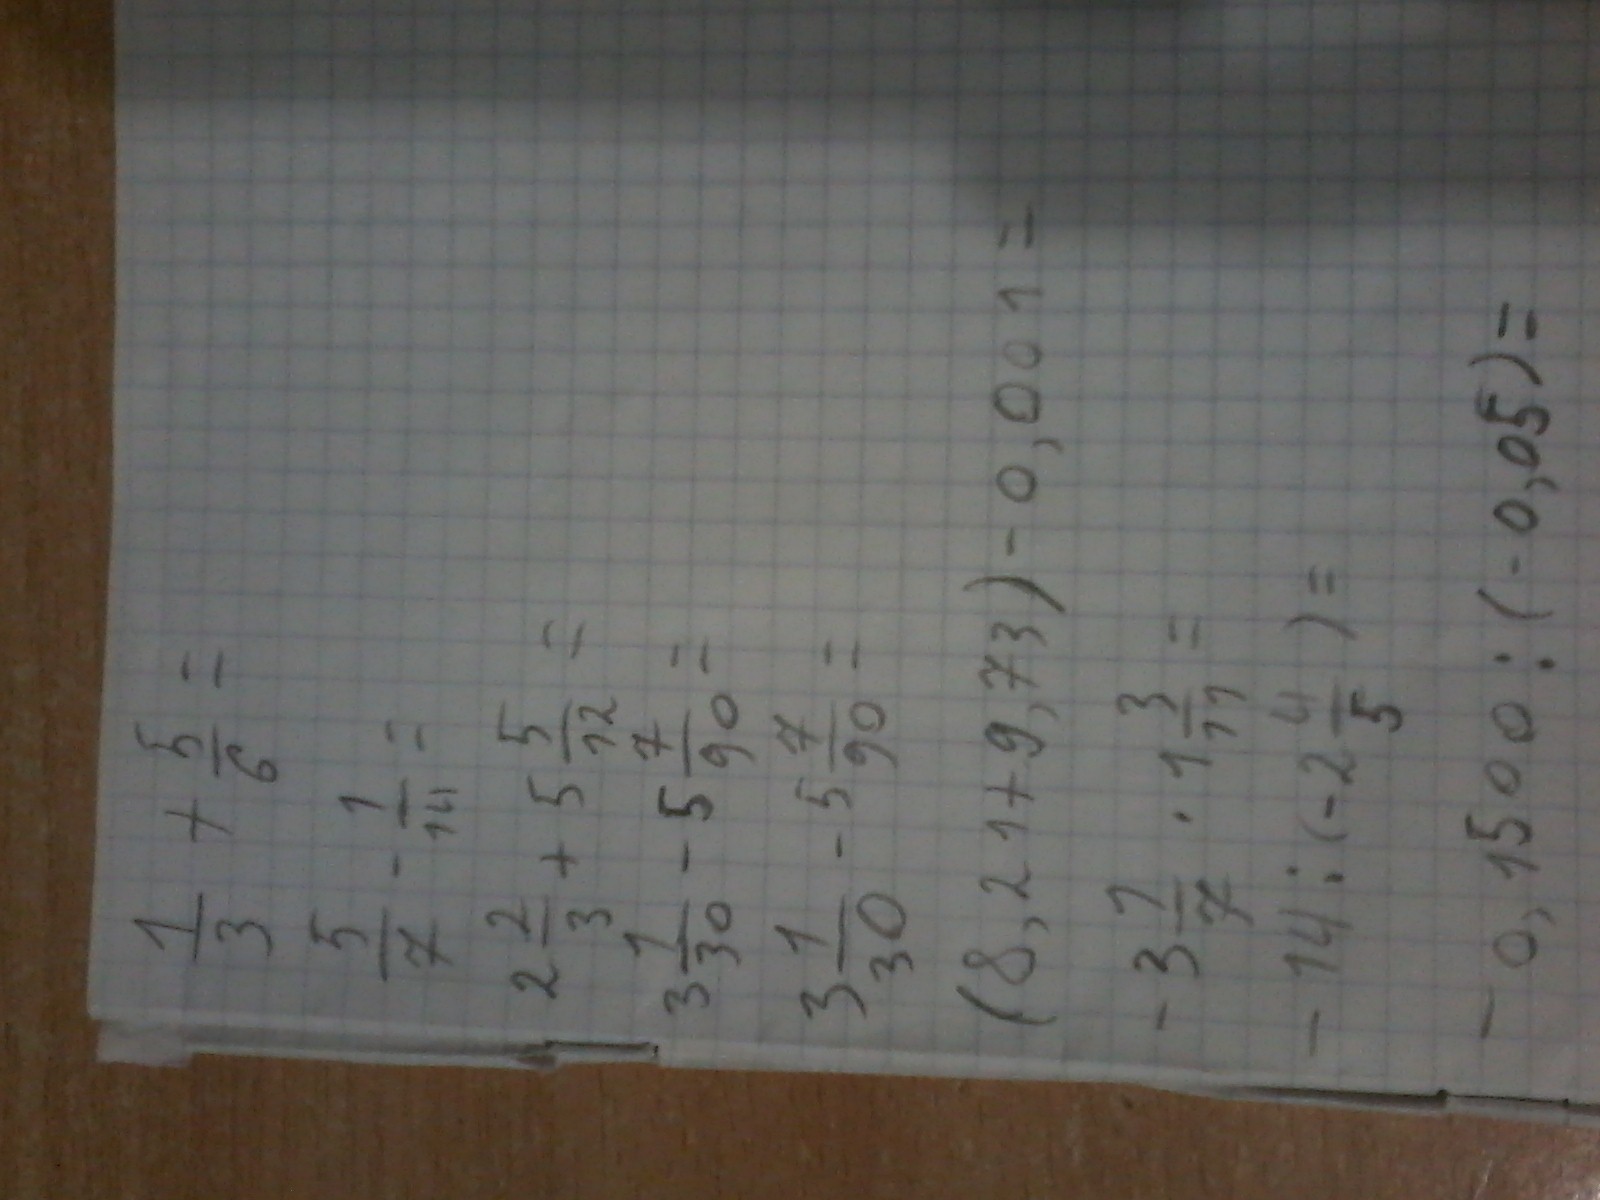 1/3 + 5/6 =
5/7 - 1/14 =
2 2/3 + 5 5/12 =
3 1/30 - 5 7/90 =
3 1/30 - 5 7/90 =
(8,21+9,73)-0,001=
-3 1/7 · 1 3/11 =
-14:(-2 4/5)=
-0,1500:(-0,05)=